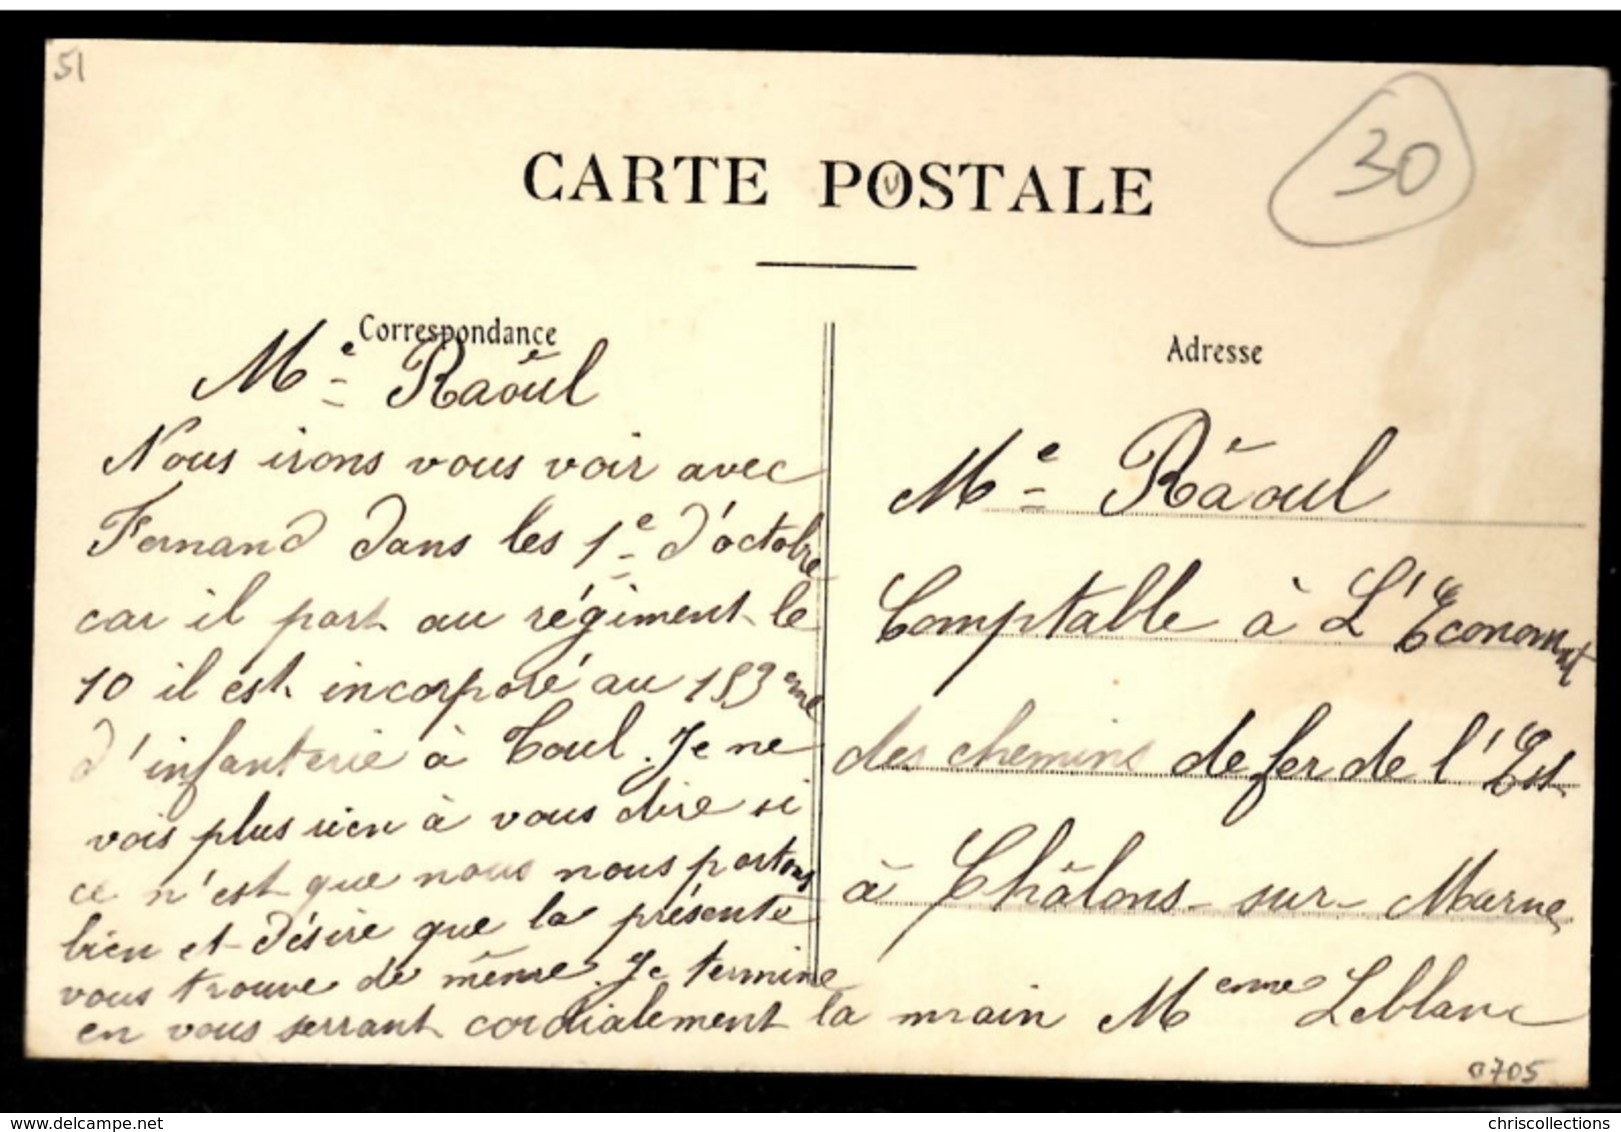 51
30
CARTE POSTALE
Correspondance
Me Raoul
Nous irons vous voir avec
Fernand dans les 1e d'octobre
car il part au régiment le
10 il est incorporé au 153eme
d'infanterie à Toul. Je ne
vois plus rien à vous dire si
ce n'est que nous nous portons
bien et désire que la présente
vous trouve de même. Je termine
en vous serrant cordialement la main Meme Leblanc
Adresse
Me Raoul
Comptable à L'Economat
des chemins de fer de l'Est
à Châlons-sur-Marne
0705
delcampe.net
chriscollections